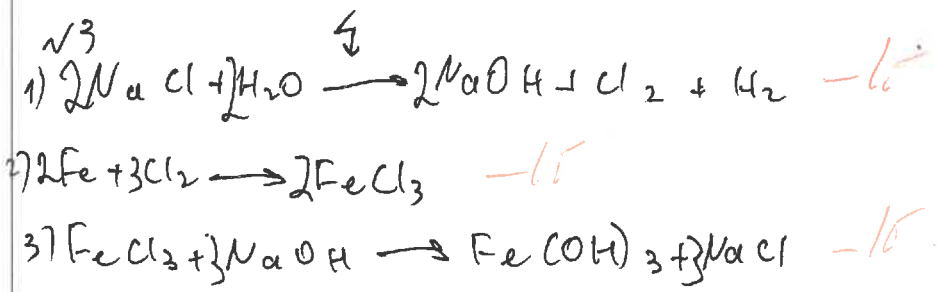 √3
1) 2NaCl + 2H₂O ⟶ 2NaOH + Cl₂ + H₂ – 1б
2) 2Fe + 3Cl₂ ⟶ 2FeCl₃ – 1б
3) FeCl₃ + 3NaOH ⟶ Fe(OH)₃ + 3NaCl – 1б